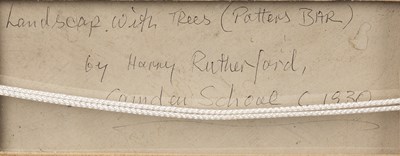 Landscap with Trees (Potters BAR)
by Harry Rutherford,
Camden School c 1930